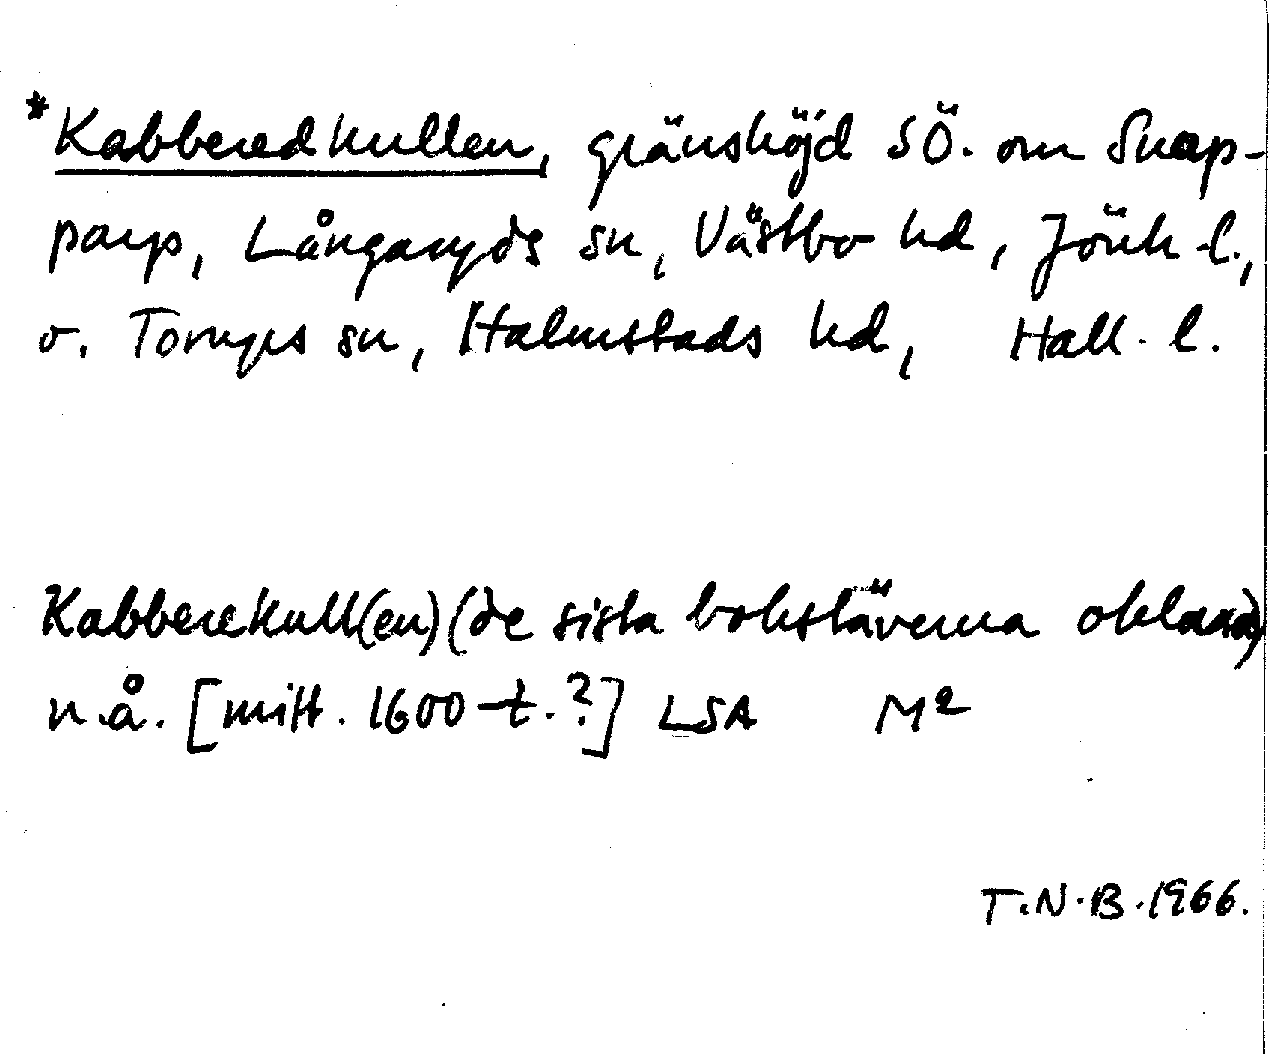 *Kabberedkullen, gränshöjd SÖ. om Snap-
parp, Långaryds sn, Västbo hd, Jönk. l.,
o. Torups sn, Halmstads hd, Hall. l.
Kabberekull(en) (de sista bokstäverna oklara)
n.å. [mitt. 1600-t.?] LSA M2
T.N.B. 1966.